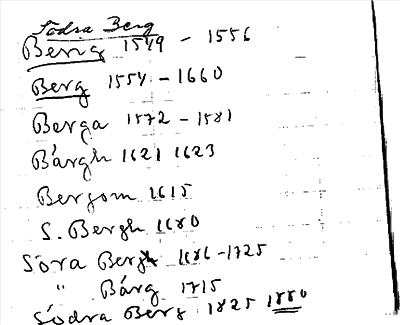 Södra Berg
Berg 1549 - 1556
Berg 1554 - 1660
Berga 1572 - 1581
Bárgh 1621 1623
Bergom 1615
S. Bergh 1680
Söra Bergh 1686 - 1725
" Bárg 1715
Södra Berg 1825 1880